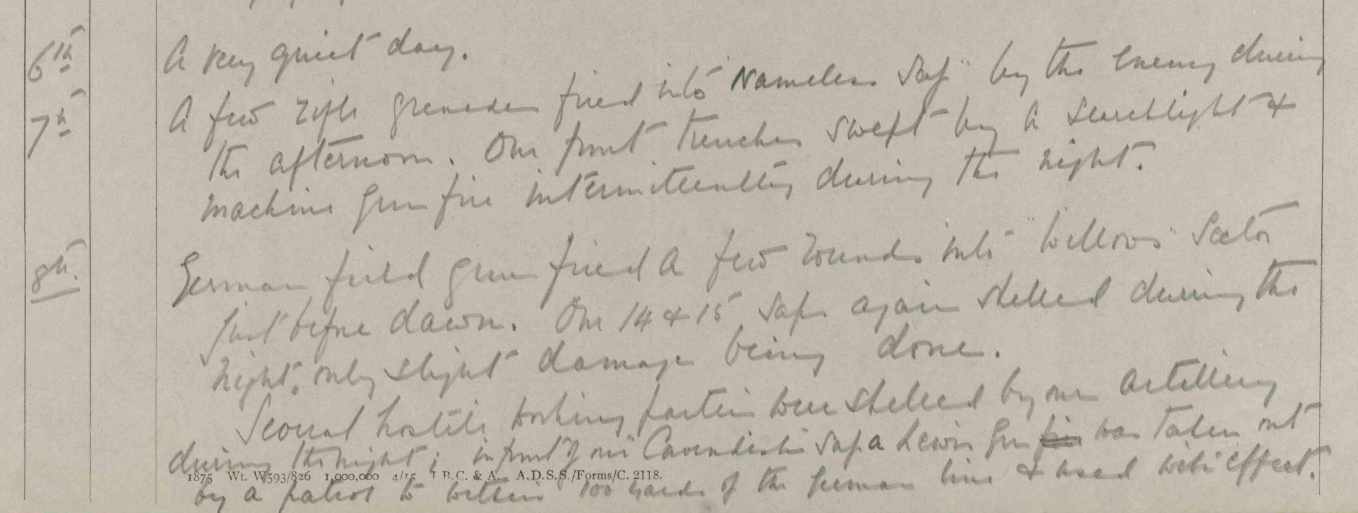 6th A very quiet day.
7th A few rifle grenades fired into "Nameless Sap" by the enemy during
the afternoon. Our front trenches swept by a searchlight &
machine gun fire intermittently during the night.
8th. German field gun fired a few rounds into "Willows" Sector
just before dawn. Our 14 & 15 Saps again shelled during the
night, only slight damage being done.
Several hostile working parties were shelled by our artillery
during the night; in front of our Cavendish Sap a Lewis Gun was taken out
1875 Wt. W593/826 1,000,000 4/15 J.B.C. & A. A.D.S.S./Forms/C. 2118.
by a patrol to within 100 yards of the German line & used with effect.